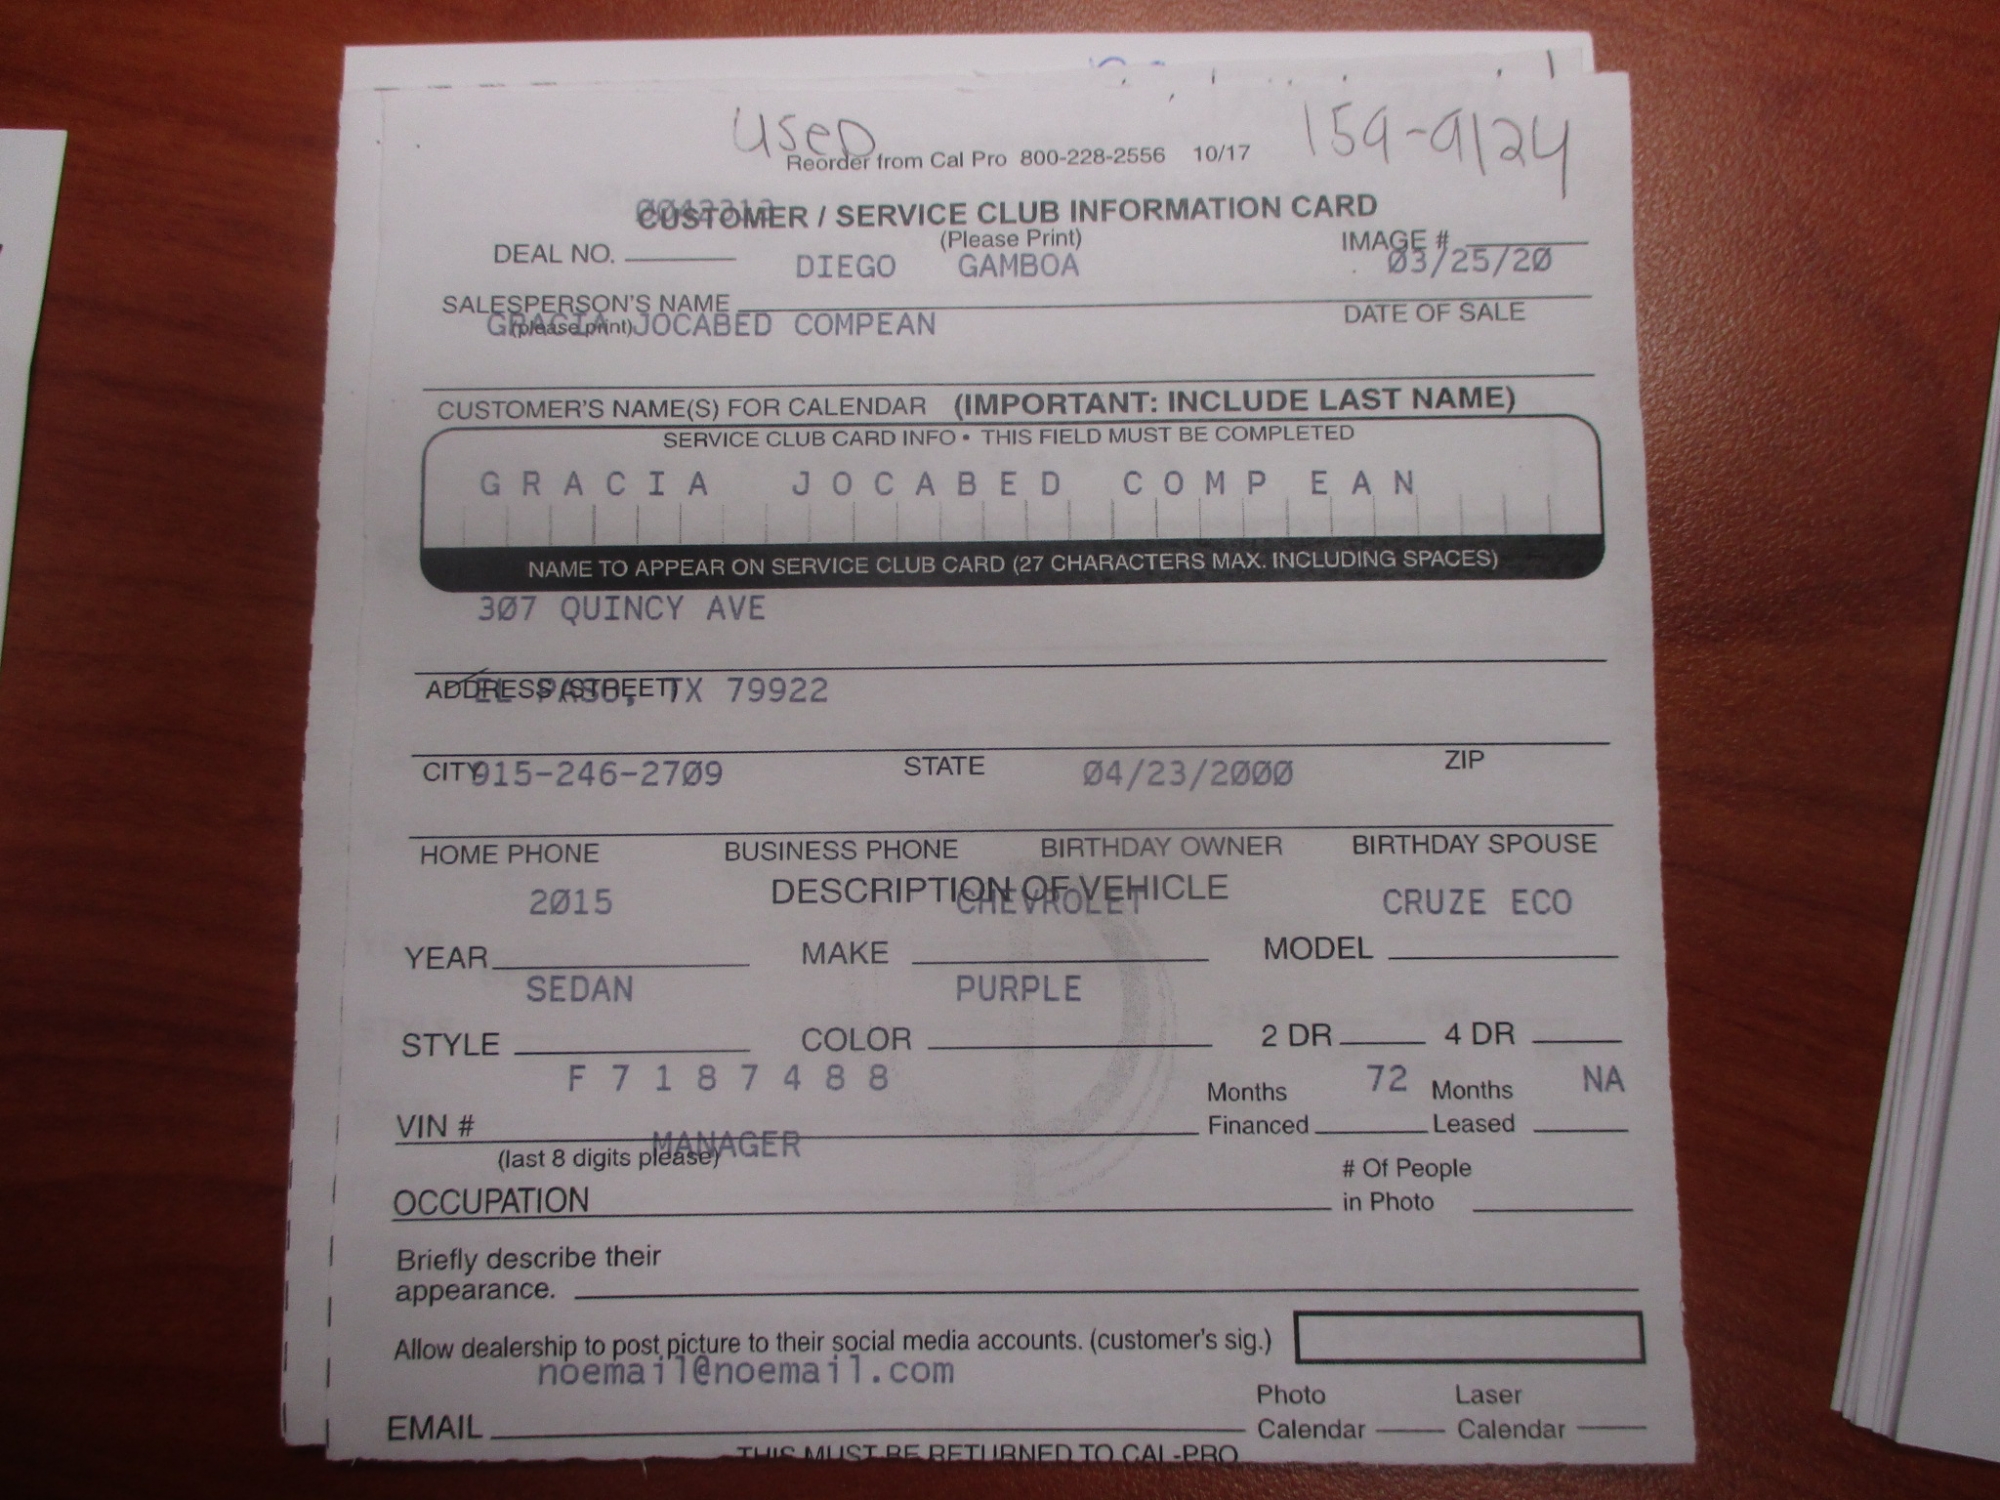 USED
159-9124
Reorder from Cal Pro 800-228-2556 10/17
CUSTOMER / SERVICE CLUB INFORMATION CARD
(Please Print)
DEAL NO. IMAGE #
DIEGO GAMBOA 03/25/20
SALESPERSON'S NAME DATE OF SALE
(please print)
GRACIA JOCABED COMPEAN
CUSTOMER'S NAME(S) FOR CALENDAR (IMPORTANT: INCLUDE LAST NAME)
SERVICE CLUB CARD INFO • THIS FIELD MUST BE COMPLETED
GRACIA JOCABED COMP EAN
NAME TO APPEAR ON SERVICE CLUB CARD (27 CHARACTERS MAX. INCLUDING SPACES)
307 QUINCY AVE
ADDRESS (STREET)
EL PASO, TX 79922
CITY STATE ZIP
915-246-2709 04/23/2000
HOME PHONE BUSINESS PHONE BIRTHDAY OWNER BIRTHDAY SPOUSE
DESCRIPTION OF VEHICLE
2015 CHEVROLET CRUZE ECO
YEAR MAKE MODEL
SEDAN PURPLE
STYLE COLOR 2 DR 4 DR
F7187488 Months 72 Months NA
VIN # Financed Leased
(last 8 digits please)
MANAGER
# Of People
OCCUPATION in Photo
Briefly describe their
appearance.
Allow dealership to post picture to their social media accounts. (customer's sig.)
noemail@noemail.com
Photo Laser
EMAIL Calendar Calendar
THIS MUST BE RETURNED TO CAL-PRO